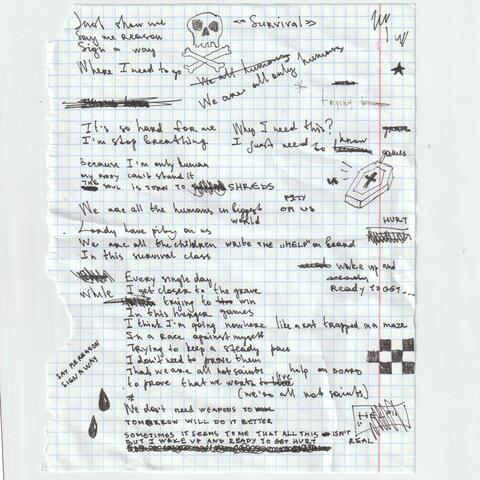 Just show me
Say me reason
Sign a way
Where I need to go
<<Survival>>
We all humans
We are all only humans
TRYING
It's so hard for me
I'm stop breathing
Why I need this?
I just need to know
Because I'm only human
my body can't stand it
THE SOUL IS TORN TO SHREDS
We are all the humans in biggest world
PITY ON US
Lordy have pity on us
We are all the children write the „HELP" on board
In this survival class
grave
games
HURT
wake up and
READY TO GET...
Every single day
I get closer to the grave
While trying to win
In this hunger games
I think I'm going nowhere like a rat trapped in a maze
In a race against myself
Trying to keep a steady pace
I don't need to prove them
That we are all not saints
help on BOARD
to prove that we worth to live
(we're all not saints)
SAY ME REASON
SIGN A WAY
We don't need WEAPONS TO
TOMORROW WILL DO IT BETTER
SOMETIMES IT SEEMS TO ME THAT ALL THIS ISN'T REAL
BUT I WAKE UP AND READY TO GET HURT